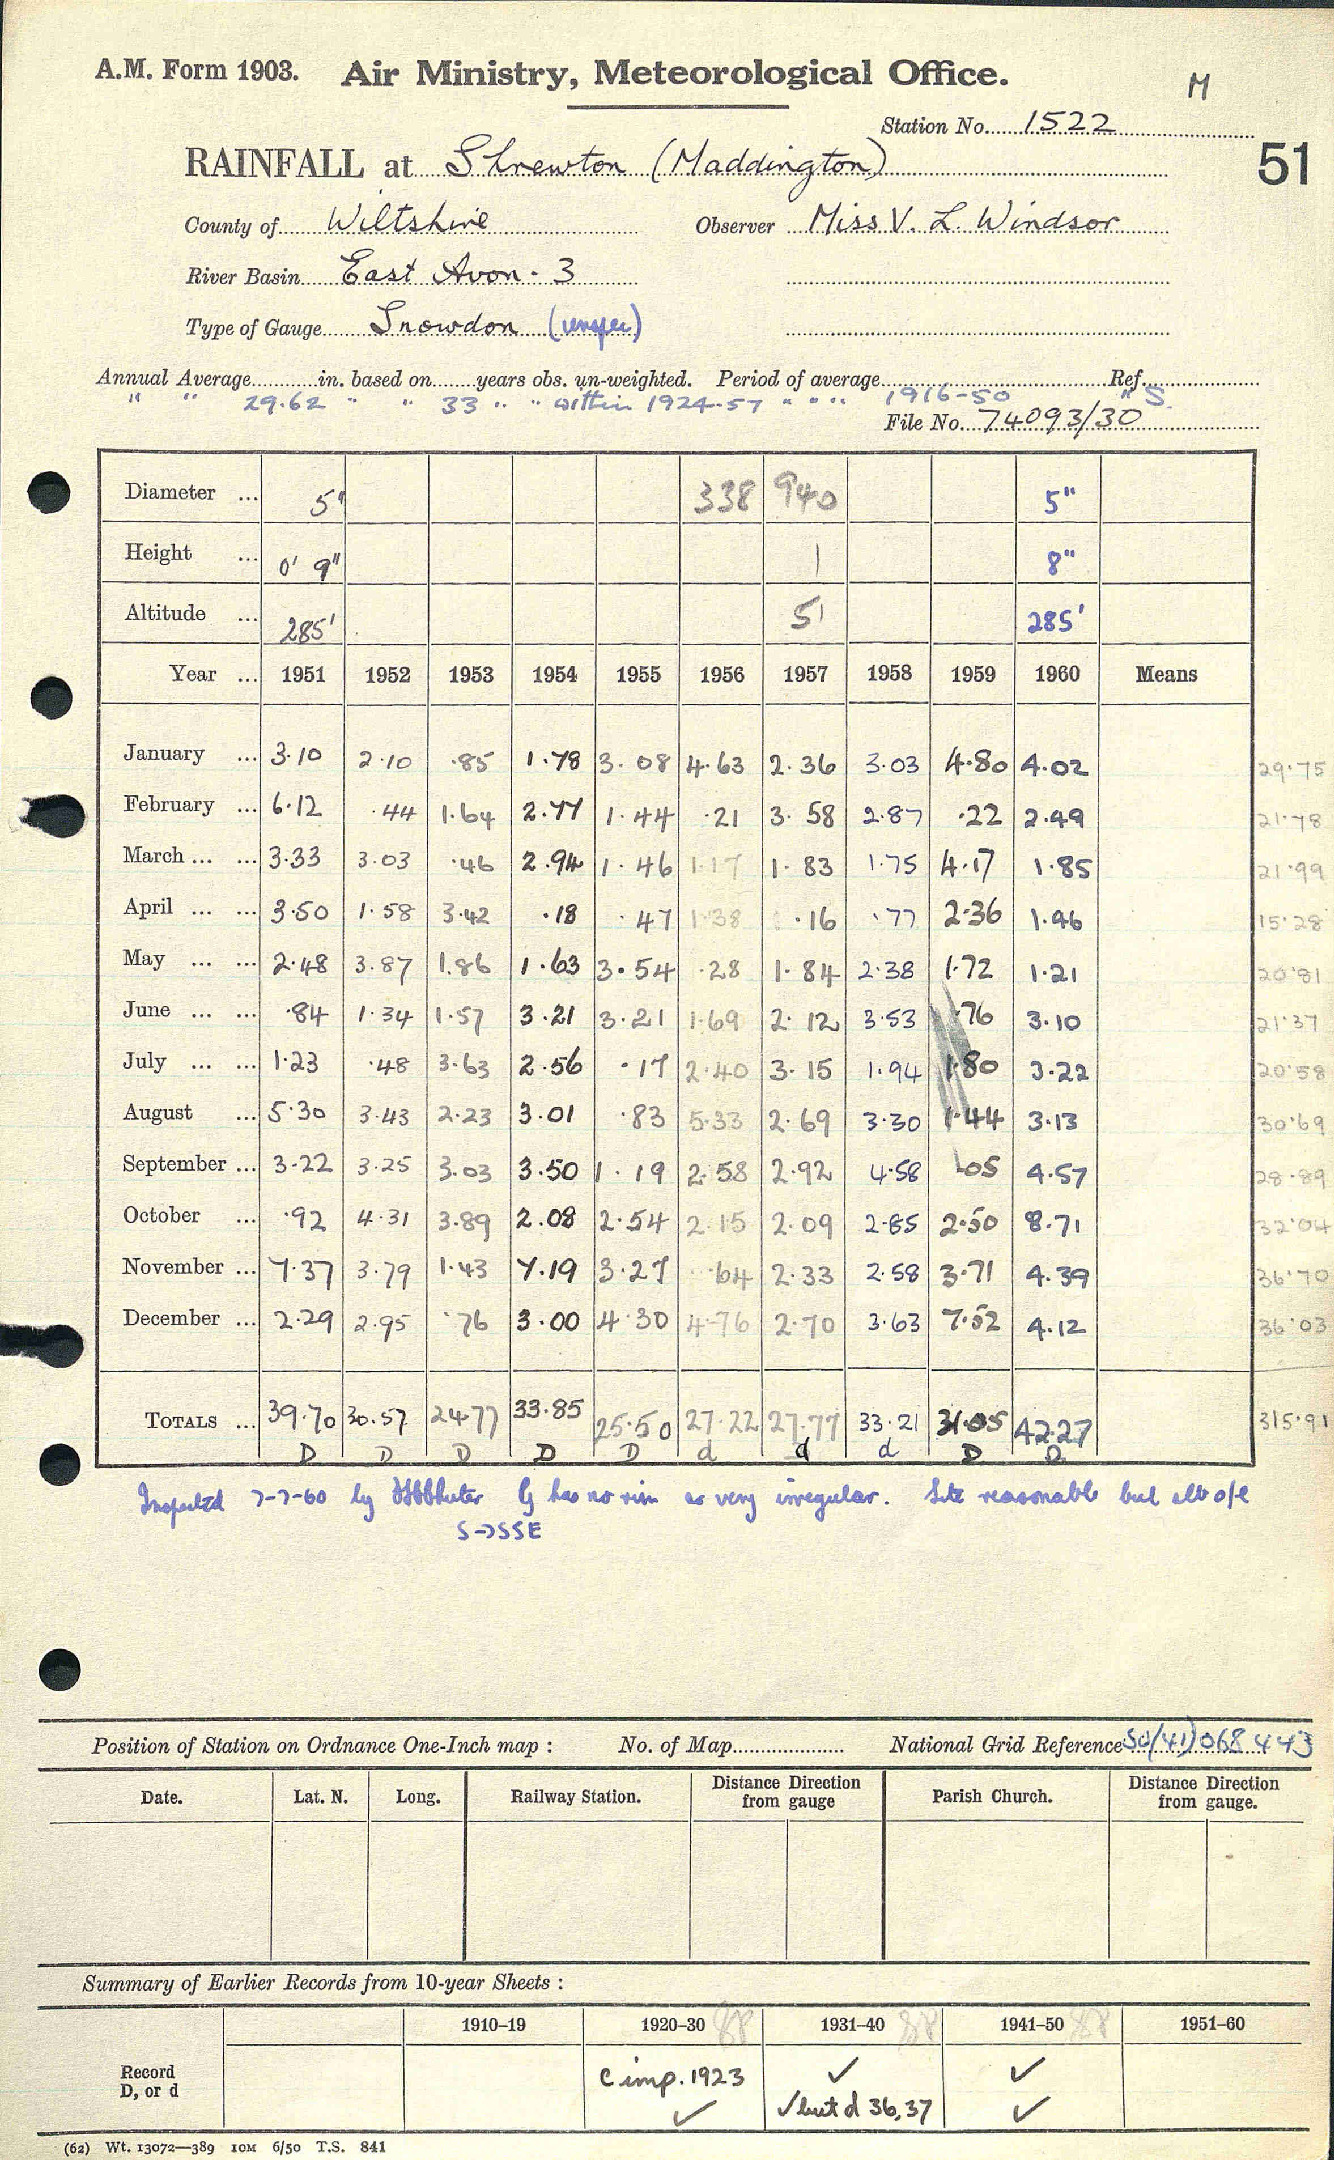 A.M. Form 1903. Air Ministry, Meteorological Office. M
Station No. 1522
51
RAINFALL at Shrewton (Maddington)
County of Wiltshire Observer Miss V. L. Windsor
River Basin East Avon - 3
Type of Gauge Snowdon
Annual Average in. based on years obs. un-weighted. Period of average Ref.
" " 29.62 " " 33 " " within 1924-57 " " " " 1916-50 " S.
File No. 74093/30
Diameter ... 5" 338 940 5"
Height ... 0' 9" 1 8"
Altitude ... 285' 51 285'
Year ... 1951 1952 1953 1954 1955 1956 1957 1958 1959 1960 Means
January ... 3.10 2.10 .85 1.78 3.08 4.63 2.36 3.03 4.80 4.02 29.75
February ... 6.12 .44 1.64 2.77 1.44 .21 3.58 2.87 .22 2.49 21.78
March ... ... 3.33 3.03 .46 2.94 1.46 1.17 1.83 1.75 4.17 1.85 21.99
April ... ... 3.50 1.58 3.42 .18 .47 1.38 .16 .77 2.36 1.46 15.28
May ... ... 2.48 3.87 1.86 1.63 3.54 .28 1.84 2.38 1.72 1.21 20.81
June ... ... .84 1.34 1.57 3.21 3.21 1.69 2.12 3.53 .76 3.10 21.37
July ... ... 1.23 .48 3.63 2.56 .17 2.40 3.15 1.94 1.80 3.22 20.58
August ... 5.30 3.43 2.23 3.01 .83 5.33 2.69 3.30 1.44 3.13 30.69
September ... 3.22 3.25 3.03 3.50 1.19 2.58 2.92 4.58 .05 4.57 28.89
October ... .92 4.31 3.89 2.08 2.54 2.15 2.09 2.85 2.50 8.71 32.04
November ... 7.37 3.79 1.43 7.19 3.27 .64 2.33 2.58 3.71 4.39 36.70
December ... 2.29 2.95 .76 3.00 4.30 4.76 2.70 3.63 7.52 4.12 36.03
TOTALS ... 39.70 30.57 24.77 33.85 25.50 27.22 27.77 33.21 31.05 42.27 315.91
D D D D D d d d D D
Inspected 7-7-60 by G has no rim or very irregular. Site reasonable but slt o/e
S→SSE
Position of Station on Ordnance One-Inch map : No. of Map National Grid Reference SU/(41) 068 443
Date. Lat. N. Long. Railway Station. Distance from gauge Direction Parish Church. Distance from gauge. Direction
Summary of Earlier Records from 10-year Sheets :
1910-19 1920-30 88 1931-40 88 1941-50 88 1951-60
Record C imp. 1923 ✓ ✓
D, or d ✓ ✓ but d 36, 37 ✓
(62) Wt. 13072—389 10M 6/50 T.S. 841